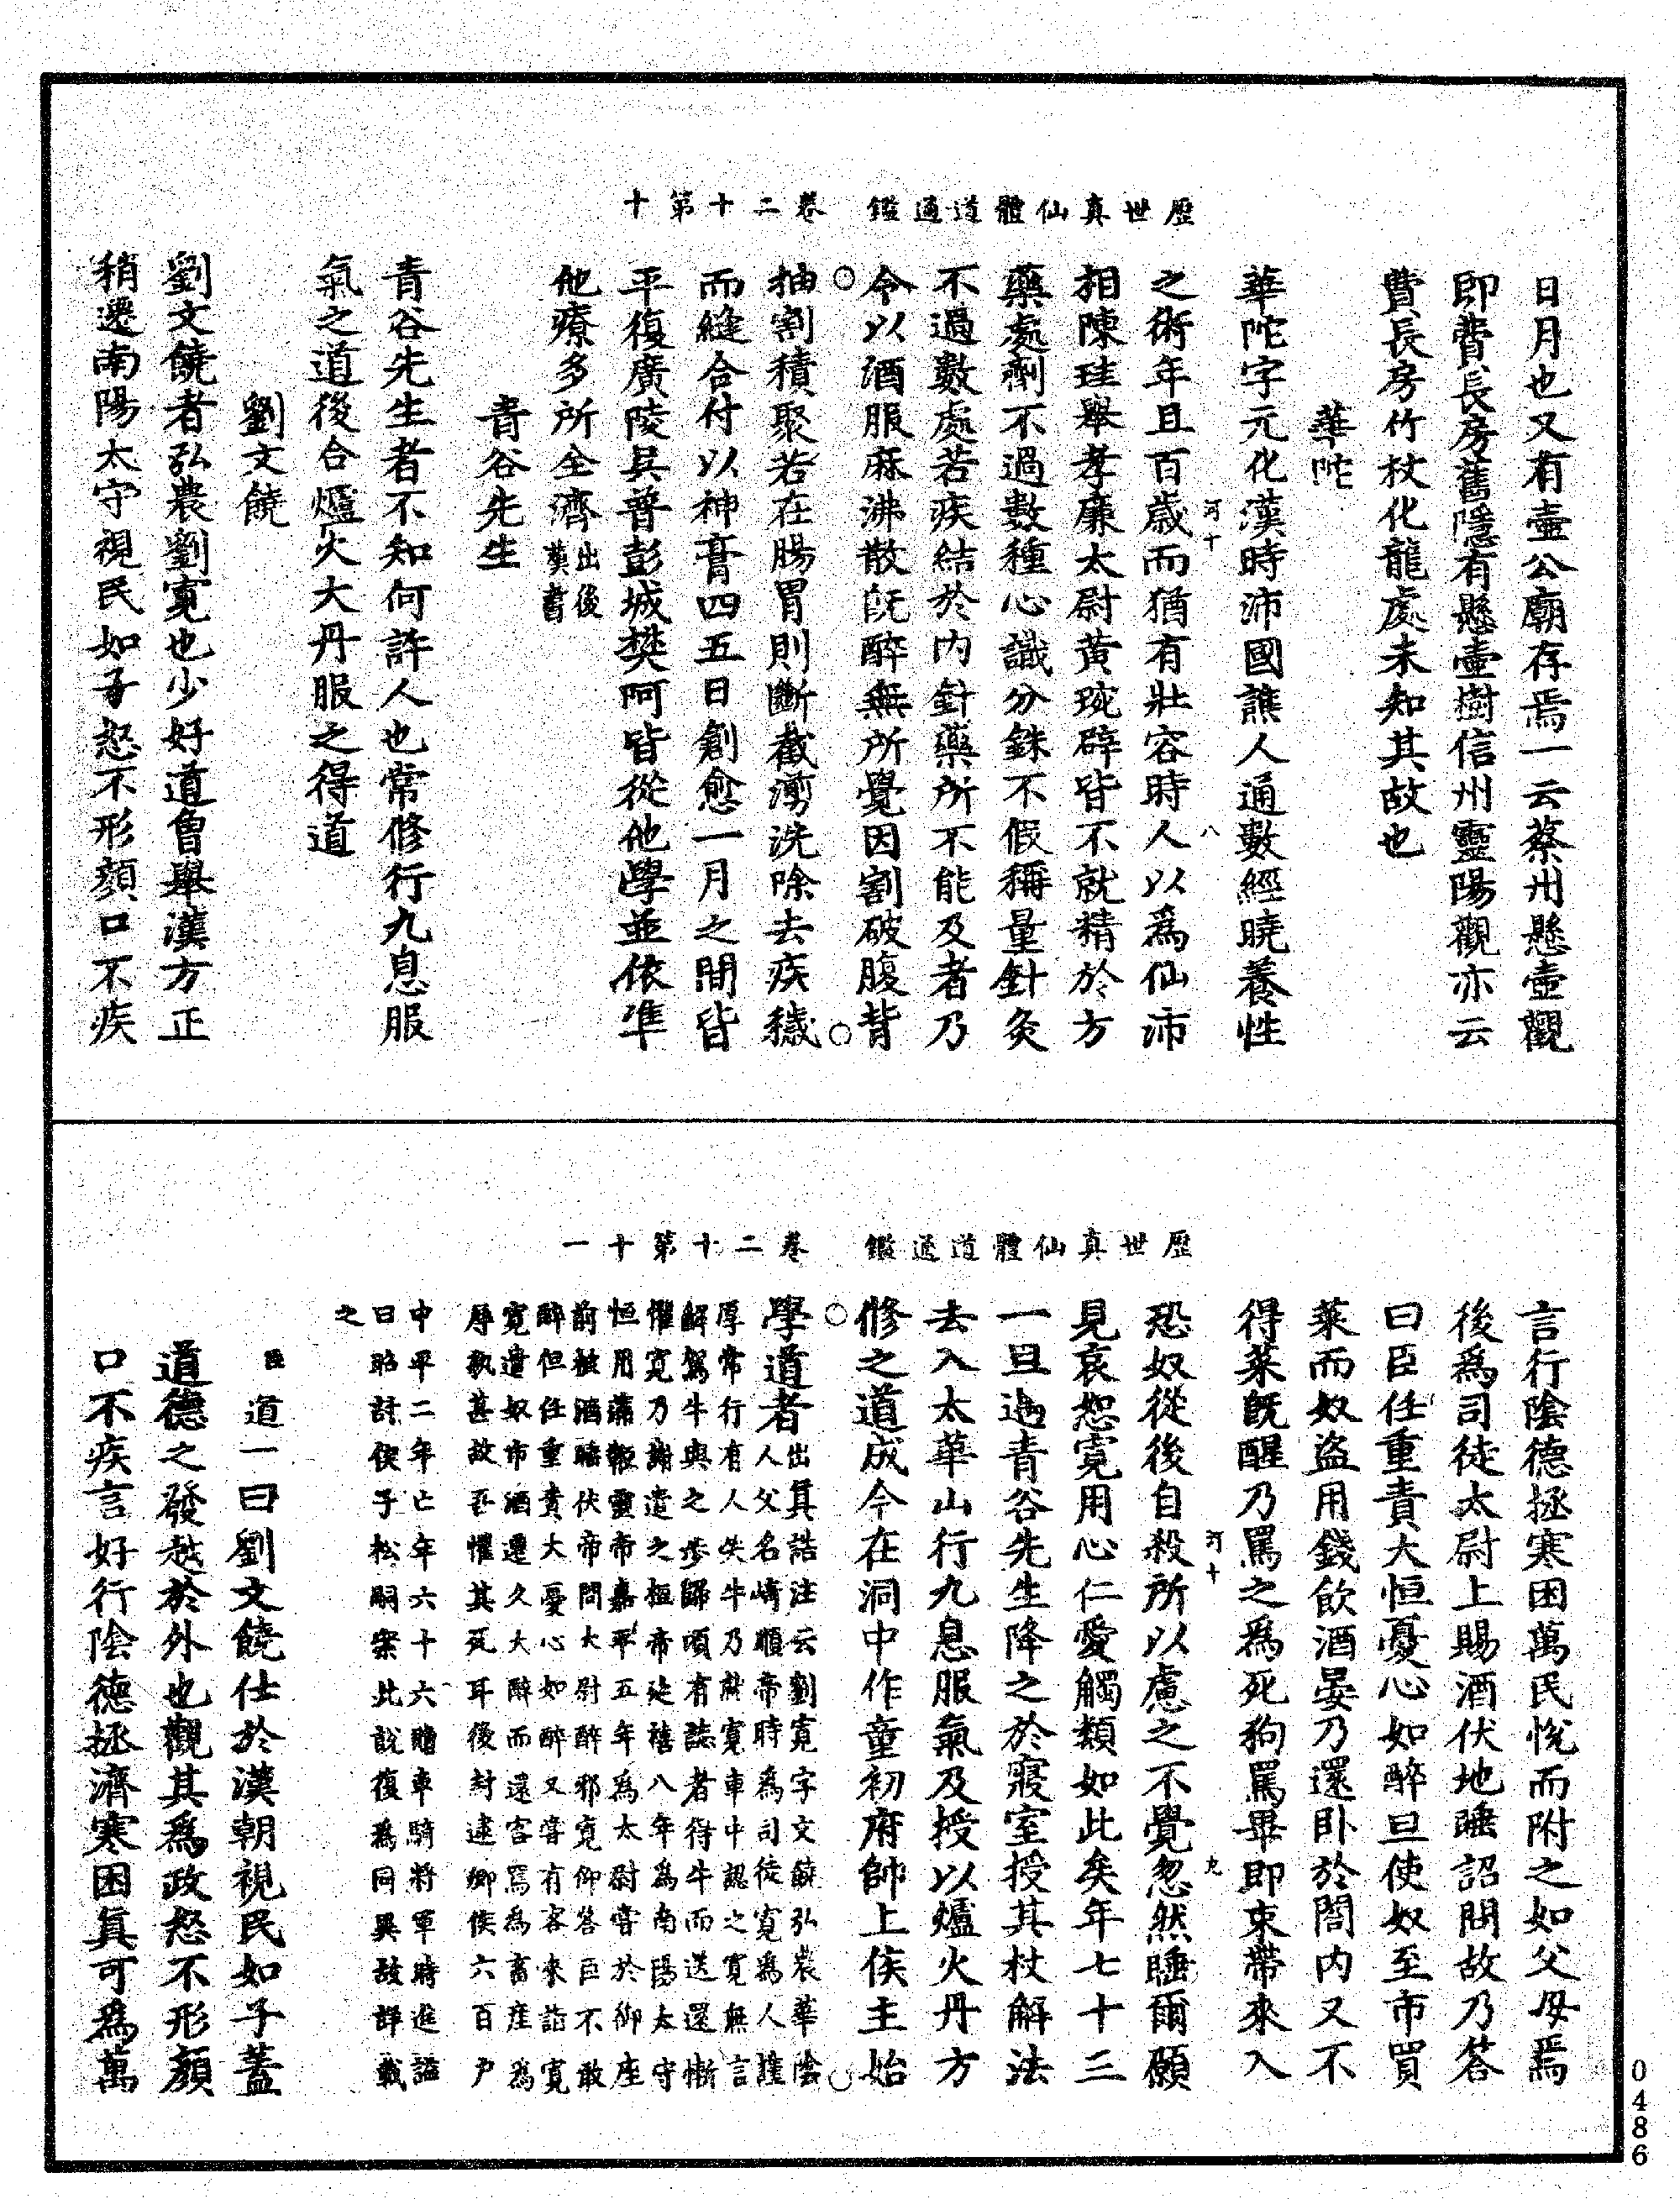 歷世真仙體道通鑑　卷二十第十
日月也又有壺公廟存焉一云蔡州懸壺觀
即費長房舊隱有懸壺樹信州靈陽觀亦云
費長房竹杖化龍處未知其故也
華陀
華陀字元化漢時沛國譙人通數經曉養性
之術年且百歲而猶有壯容時人以為仙沛
河十　八
相陳珪舉孝廉太尉黃琬辟皆不就精於方
藥處劑不過數種心識分銖不假稱量針灸
不過數處若疾結於内針藥所不能及者乃
令以酒服麻沸散既醉無所覺因割破腹背
抽割積聚若在腸胃則斷截湔洗除去疾穢
而縫合付以神膏四五日創愈一月之間皆
平復廣陵吳普彭城樊阿皆從他學並依準
他療多所全濟出後漢書
青谷先生
青谷先生者不知何許人也常修行九息服
氣之道後合爐火大丹服之得道
劉文饒
劉文饒者弘農劉寬也少好道曾舉漢方正
稍遷南陽太守視民如子怒不形顏口不疾
歷世真仙體道通鑑　卷二十第十一
言行陰德拯寒困萬民悅而附之如父母焉
後為司徒太尉上賜酒伏地睡詔問故乃答
曰臣任重責大恒憂心如醉旦使奴至市買
菜而奴盜用錢飲酒晏乃還卧於閤内又不
得菜既醒乃罵之為死狗罵畢即束帶來入
恐奴從後自殺所以慮之不覺忽然睡爾願
河十　九
見哀恕寬用心仁愛觸類如此矣年七十三
一旦遇青谷先生降之於寢室授其杖解法
去入太華山行九息服氣及授以爐火丹方
修之道成今在洞中作童初府帥上侯主始
學道者出真誥注云劉寬字文饒弘農華陰
人父名崎順帝時為司徒寬為人謹
厚常行有人失牛乃就寬車中認之寬無言
解駕牛與之步歸頃有誌者得牛而送還慚
懼寬乃謝遣之桓帝延禧八年為南陽太守
恒用蒲鞭靈帝嘉平五年為太尉嘗於御座
前被酒睡伏帝問太尉醉邪寬仰答臣不敢
醉但任重責大憂心如醉又嘗有客來詣寬
寬遣奴市酒遷久大醉而還客罵為畜産為
辱孰甚故吾懼其死耳後封逮鄉侯六百户
中平二年亡年六十六贈車騎將軍特進謚
曰昭討侯子松嗣案此說復為同異故詳載
之
臣道一曰劉文饒仕於漢朝視民如子蓋
道德之發越於外也觀其為政怒不形顏
口不疾言好行陰德拯濟寒困真可為萬
0486